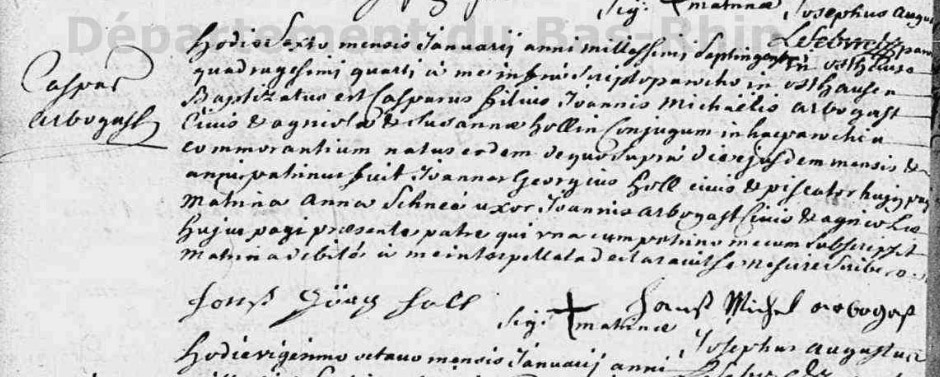 Sig: + matrinæ Josephus Augus
Département du Bas-Rhin
Lefebvre
Caspar
Arbogast
Hodie sexto mensis Januarij anni millessimi septingent
quadragesimi quarti à me infrà scripto parocho in osthausen
Baptizatus est Casparus filius Joannis Michaelis arbogast
Civis & agricolæ & Susannæ Hollin Conjugum in hac parochia
commorantium natus eodem de quo suprà die ejusdem mensis &
anni patrinus fuit Joannes Georgius Holl civis & piscator hujus pagi
matrina Anna Schnee uxor Joannis arbogast Civis & agricolæ
hujus pagi præsente patre qui una cum patrino mecum subscripsit
matrina debitè à me interpellata declaravit se nescire scribere
Hanß Görg Holl
Sig: + matrinæ
Hanß Michel arbogast
Josephus augustus
Hodie vigesimo octavo mensis Januarij anni